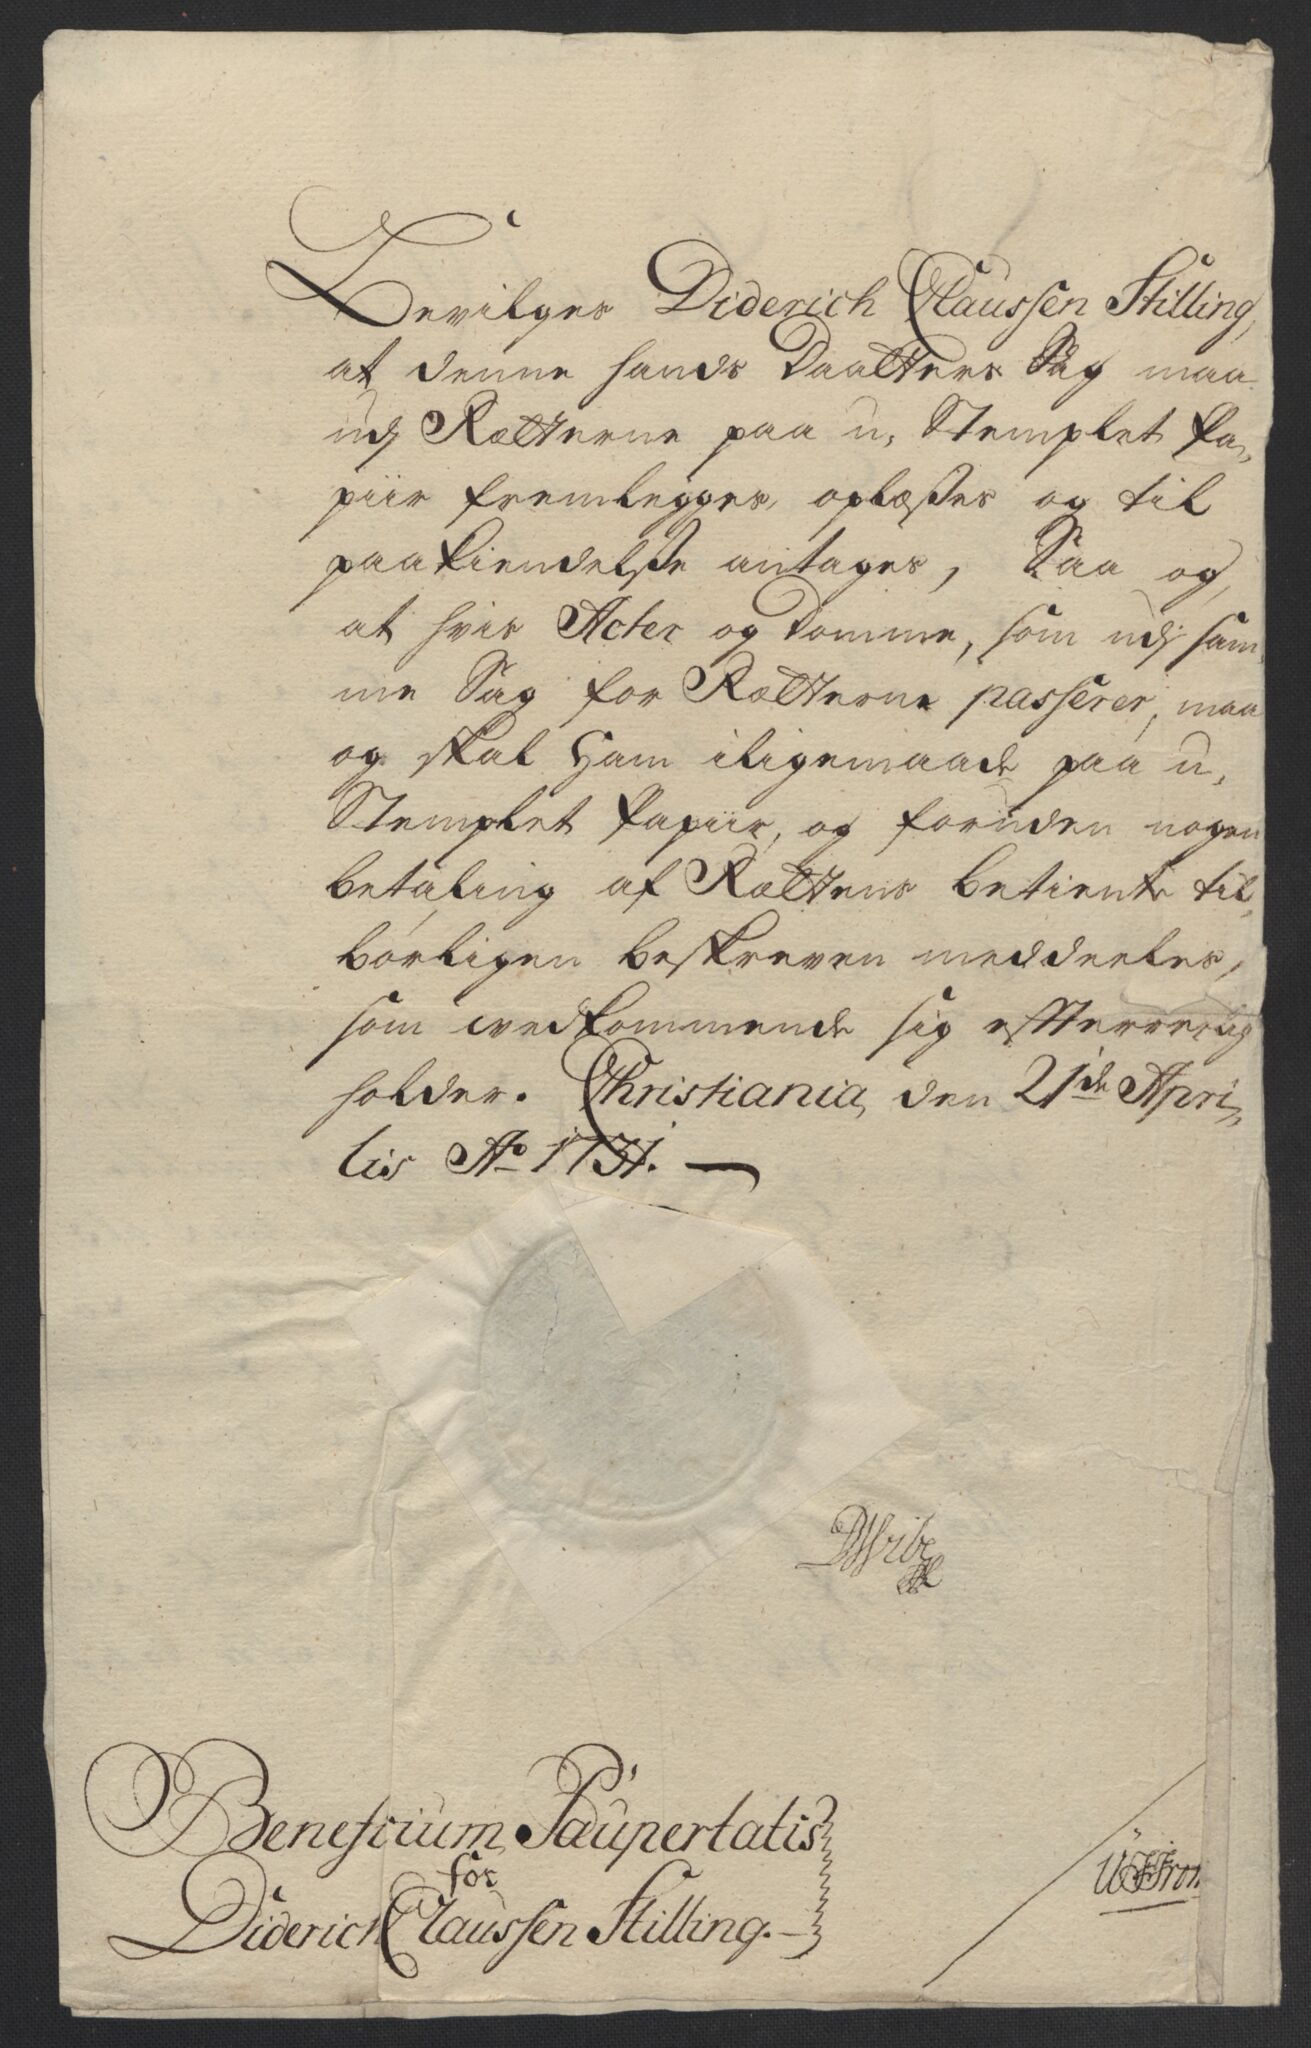 Bevilges Diderich Claussen Stilling,
at denne hands Daatters Sag maa
udj Rætterne paa u, Stemplet Pa,
piir fremlegges, oplæsses og til
paakiendelsse antages, Saa og,
at hvis Acter og Domme, som udj sam,
me Sag for Rætterne passerer, maa
og skal ham iligemaade paa u,
Stemplet Papiir, og foruden nogen
betaling af Rættens betiente til,
børligen beskreven meddeeles,
som wedkommende sig efterrettelig
holder. Christiania, den 21de Apri,
lis Ao 1731.
DWibe
Beneficium Paupertatis
for
Diderich Claussen Stilling.